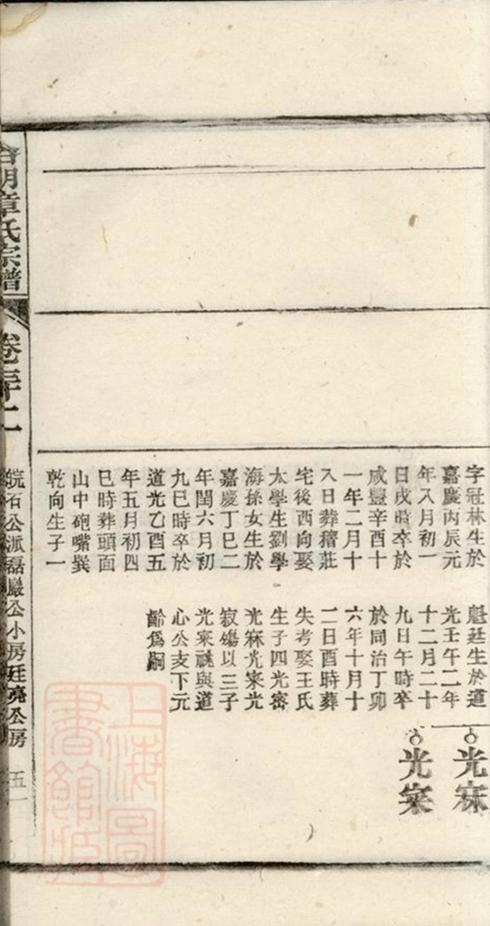 字冠林生於
嘉慶丙辰元
年八月初一
日戌時卒於
咸豐辛酉十
一年二月十
八日葬稽莊
宅後西向娶
太學生劉學
海孫女生於
嘉慶丁巳二
年閏六月初
九巳時卒於
道光乙酉五
年五月初四
巳時葬頭面
山中砲嘴巽
乾向生子一
魁廷生於道
光壬午二年
十二月二十
九日午時卒
於同治丁卯
六年十月十
二日酉時葬
失考娶王氏
生子四光密
光寐光寀光
寂殤以三子
光寀祧與道
心公支下元
齡為嗣
光寐
光寀
合明章氏宗譜
卷三十二
皖石公派磊巖公小房廷堯公房
五一
上海圖書館藏